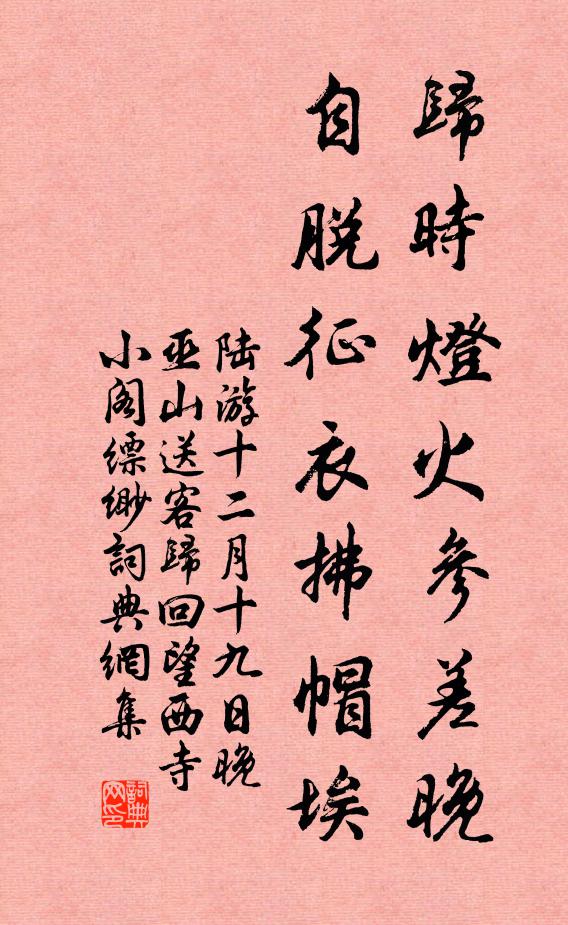 歸時燈火參差晚
自脱征衣拂帽埃
陆游十二月十九日晚
巫山送客歸回望西寺
小阁缥缈詞典網集
詞典
网印